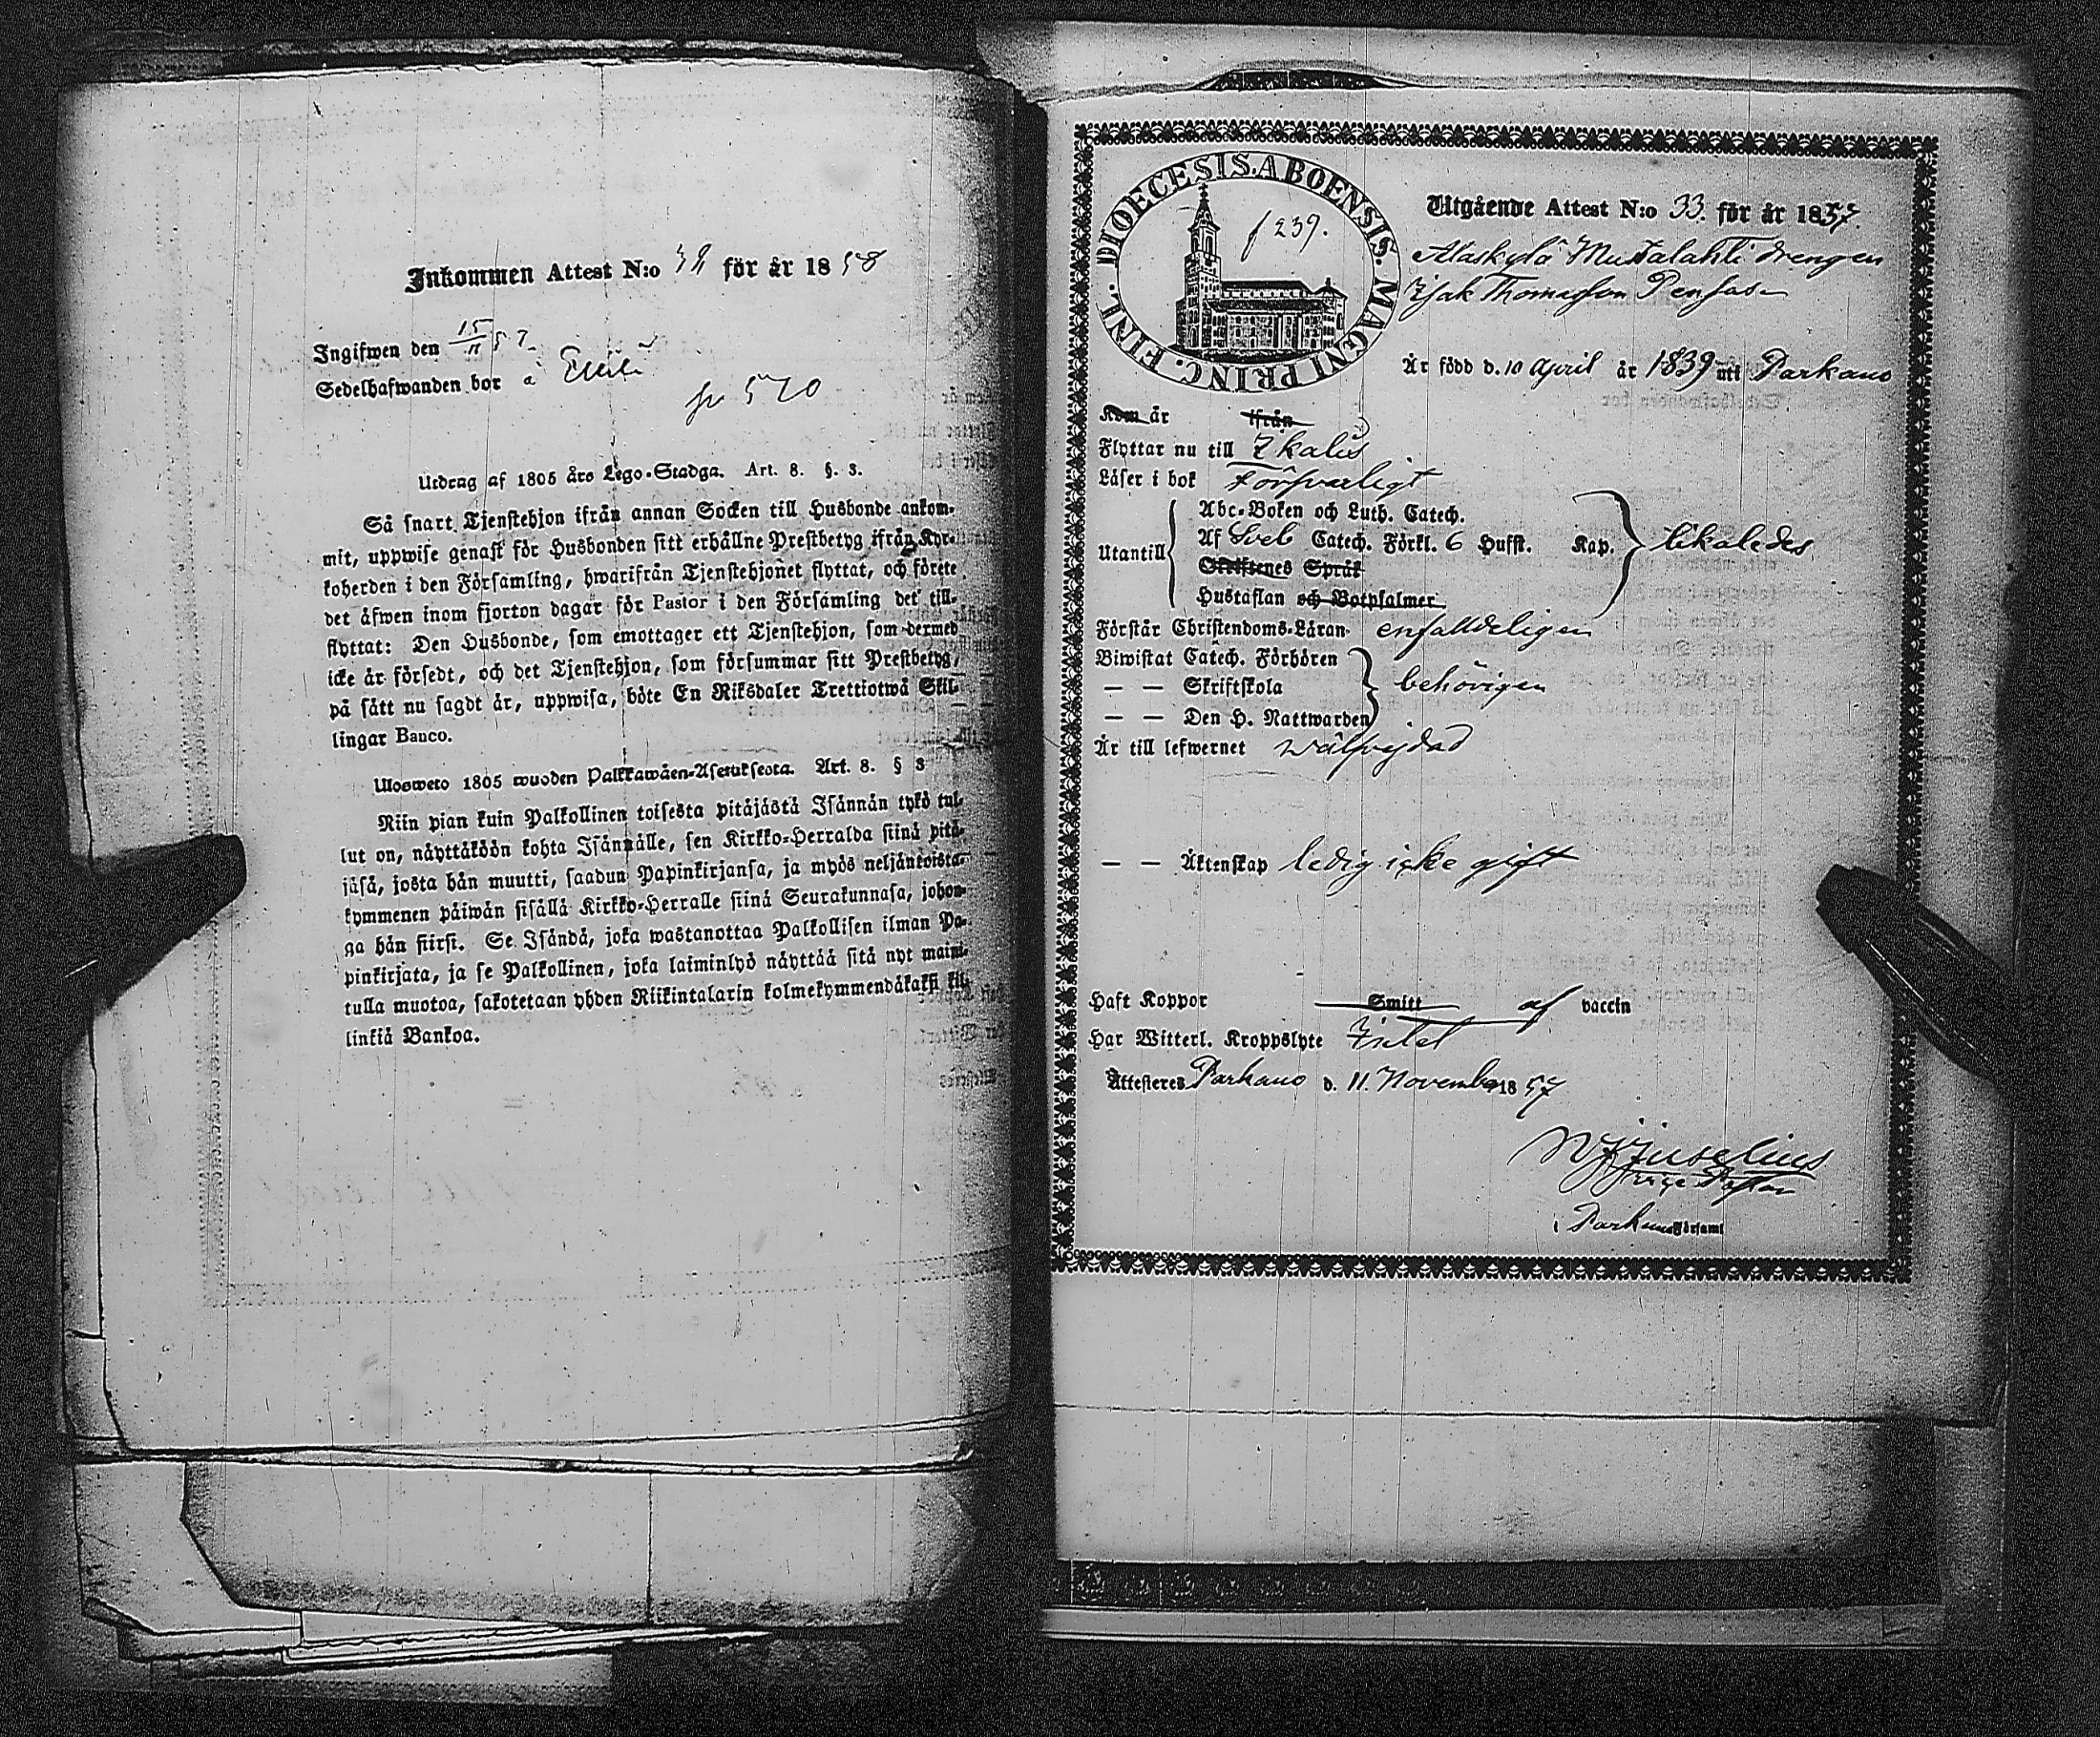 Inkommen Attest N:o för år 1858
Ingifwen den 15/11 57.
Sedelhafwanden bor å
570
Utdrag af 1805 års Lego-Stadga. Art. 8. §. 3.
Så snart Tjenstehjon ifrån annan Socken till Husbonde ankom-
mit, uppwise genast för Husbonden sitt erhållne Prestbetyg ifrån Kyr-
koherden i den Församling, hwarifrån Tjenstehjonet flyttat, och förete
det äfwen inom fjorton dagar för Pastor i den Församling det till-
flyttat: Den Husbonde, som emottager ett Tjenstehjon, som dermed
icke är försedt, och det Tjenstehjon, som försummar sitt Prestbetyg,
på sått nu sagdt är, uppwisa, böte En Riksdaler Trettiotwå Skil-
lingar Banco.
Ulosweto 1805 wuoden Palkkawäen-Asetuksesta. Art. 8. § 3
Niin pian kuin Palkollinen toisesta pitäjästä Isännän tykö tul-
lut on, näyttäköön kohta Isännälle, sen Kirkko-Herralda siinä pitä-
jäsä, josta hän muutti, saadun Papinkirjansa, ja myös neljäntoista-
kymmenen päiwän sisällä Kirkko-Herralle siinä Seurakunnasa, johon-
ga hän siirsi. Se Isändä, joka wastanottaa Palkollisen ilman Pa-
pinkirjata, ja se Palkollinen, joka laiminlyö näyttää sitä nyt maini-
tulla muotoa, sakotetaan yhden Riikintalarin kolmekymmendäkaksi kil-
linkiä Bankoa.
DIOECESIS. ABOENSIS. MAGNI PRINC. FINL.
f 239.
Utgående Attest N:o 33. för år 1857.
Alaskylä Mustalahti drengen
Isak Thomasson Penfas
Är född d. 10 April år 1839 uti Parkano
Kom år ifrån
Flyttar nu till Ikalis
Läser i bok Försvarligt
Utantill
Abc-Boken och Luth. Catech.
Af Sveb Catech. Förkl. 6 Hufst. Kap. likaledes
Skriftenes Språk
Hustaflan och Botpsalmer
Förstår Christendoms-Läran enfalldeligen
Biwistat Catech. Förhören
— — Skriftskola behörigen
— — Den H. Nattwarden
Är till lefwernet wälfrejdad
— — Äktenskap ledig icke gift
Haft Koppor Smitt af vaccin
Har Witterl. Kroppslyte Intet
Attesteres Parkano d. 11. November 1857
Juselius
Pastor
i Parkano Församl